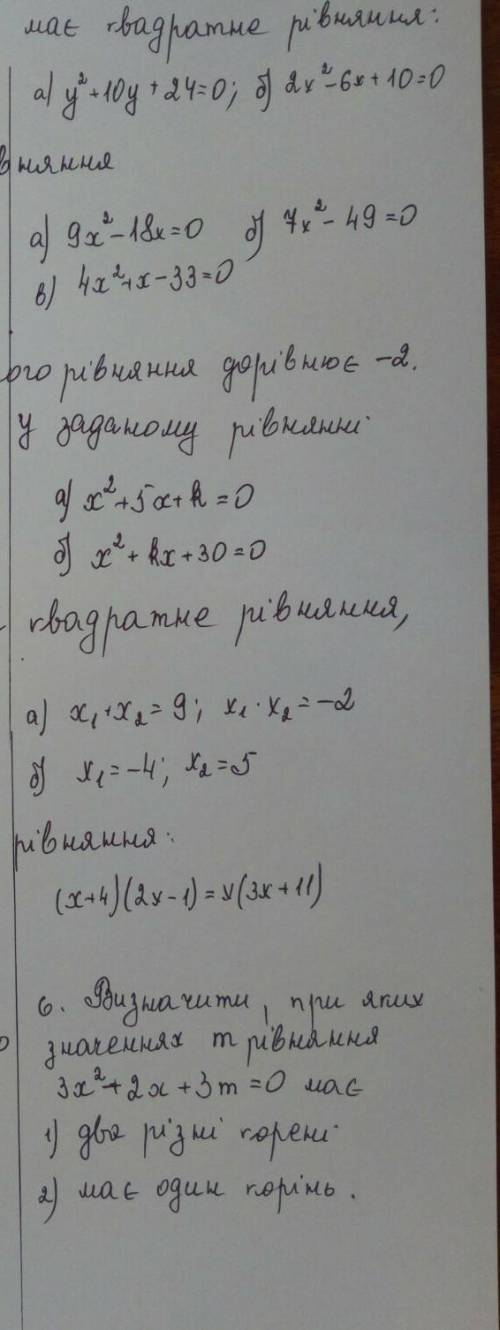 має квадратне рівняння:
а) y²+10y+24=0; б) 2x²-6x+10=0
вняння
а) 9x²-18x=0 б) 7x²-49=0
в) 4x²+x-33=0
ого рівняння дорівнює -2.
у заданому рівнянні
а) x²+5x+k=0
б) x²+kx+30=0
квадратне рівняння,
а) x₁+x₂=9; x₁·x₂=-2
б) x₁=-4; x₂=5
рівняння:
(x+4)(2x-1)=x(3x+11)
6. Визначити, при яких
значеннях m рівняння
3x²+2x+3m=0 має
1) два різні корені
2) має один корінь.